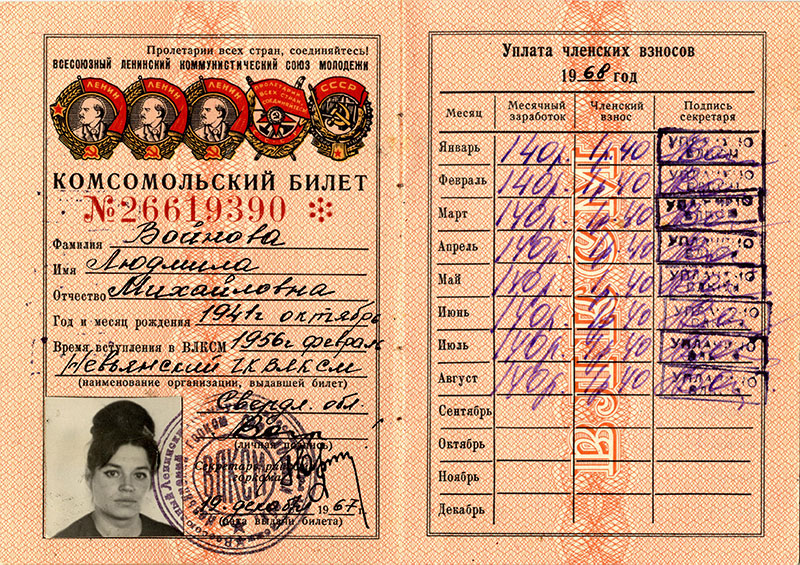 Пролетарии всех стран, соединяйтесь!
ВСЕСОЮЗНЫЙ ЛЕНИНСКИЙ КОММУНИСТИЧЕСКИЙ СОЮЗ МОЛОДЕЖИ
ЛЕНИН ЛЕНИН ЛЕНИН ПРОЛЕТАРИИ ВСЕХ СТРАН, СОЕДИНЯЙТЕСЬ! СССР
КОМСОМОЛЬСКИЙ БИЛЕТ
№26619390
Фамилия Войнова
Имя Людмила
Отчество Михайловна
Год и месяц рождения 1941г октябрь
Время вступления в ВЛКСМ 1956г февраль
Невьянский ГКВЛКСМ
(наименование организации, выдавшей билет)
Свердл. обл.
(личная подпись)
Секретарь
горкома
ВЛКСМ
19 декабря 1967 г.
(дата выдачи билета)
Уплата членских взносов
1968 год
Месяц Месячный заработок Членский взнос Подпись секретаря
Январь 140р. 1р.40 УПЛАЧЕНО
Февраль 140р. 1р.40 УПЛАЧЕНО
Март 140р. 1р.40 УПЛАЧЕНО
Апрель 140р. 1р.40 УПЛАЧЕНО
Май 140р. 1р.40 УПЛАЧЕНО
Июнь 140р. 1р.40 УПЛАЧЕНО
Июль 140р. 1р.40 УПЛАЧЕНО
Август 140р. 1р.40 УПЛАЧЕНО
Сентябрь
Октябрь
Ноябрь
Декабрь
ВЛКСМ